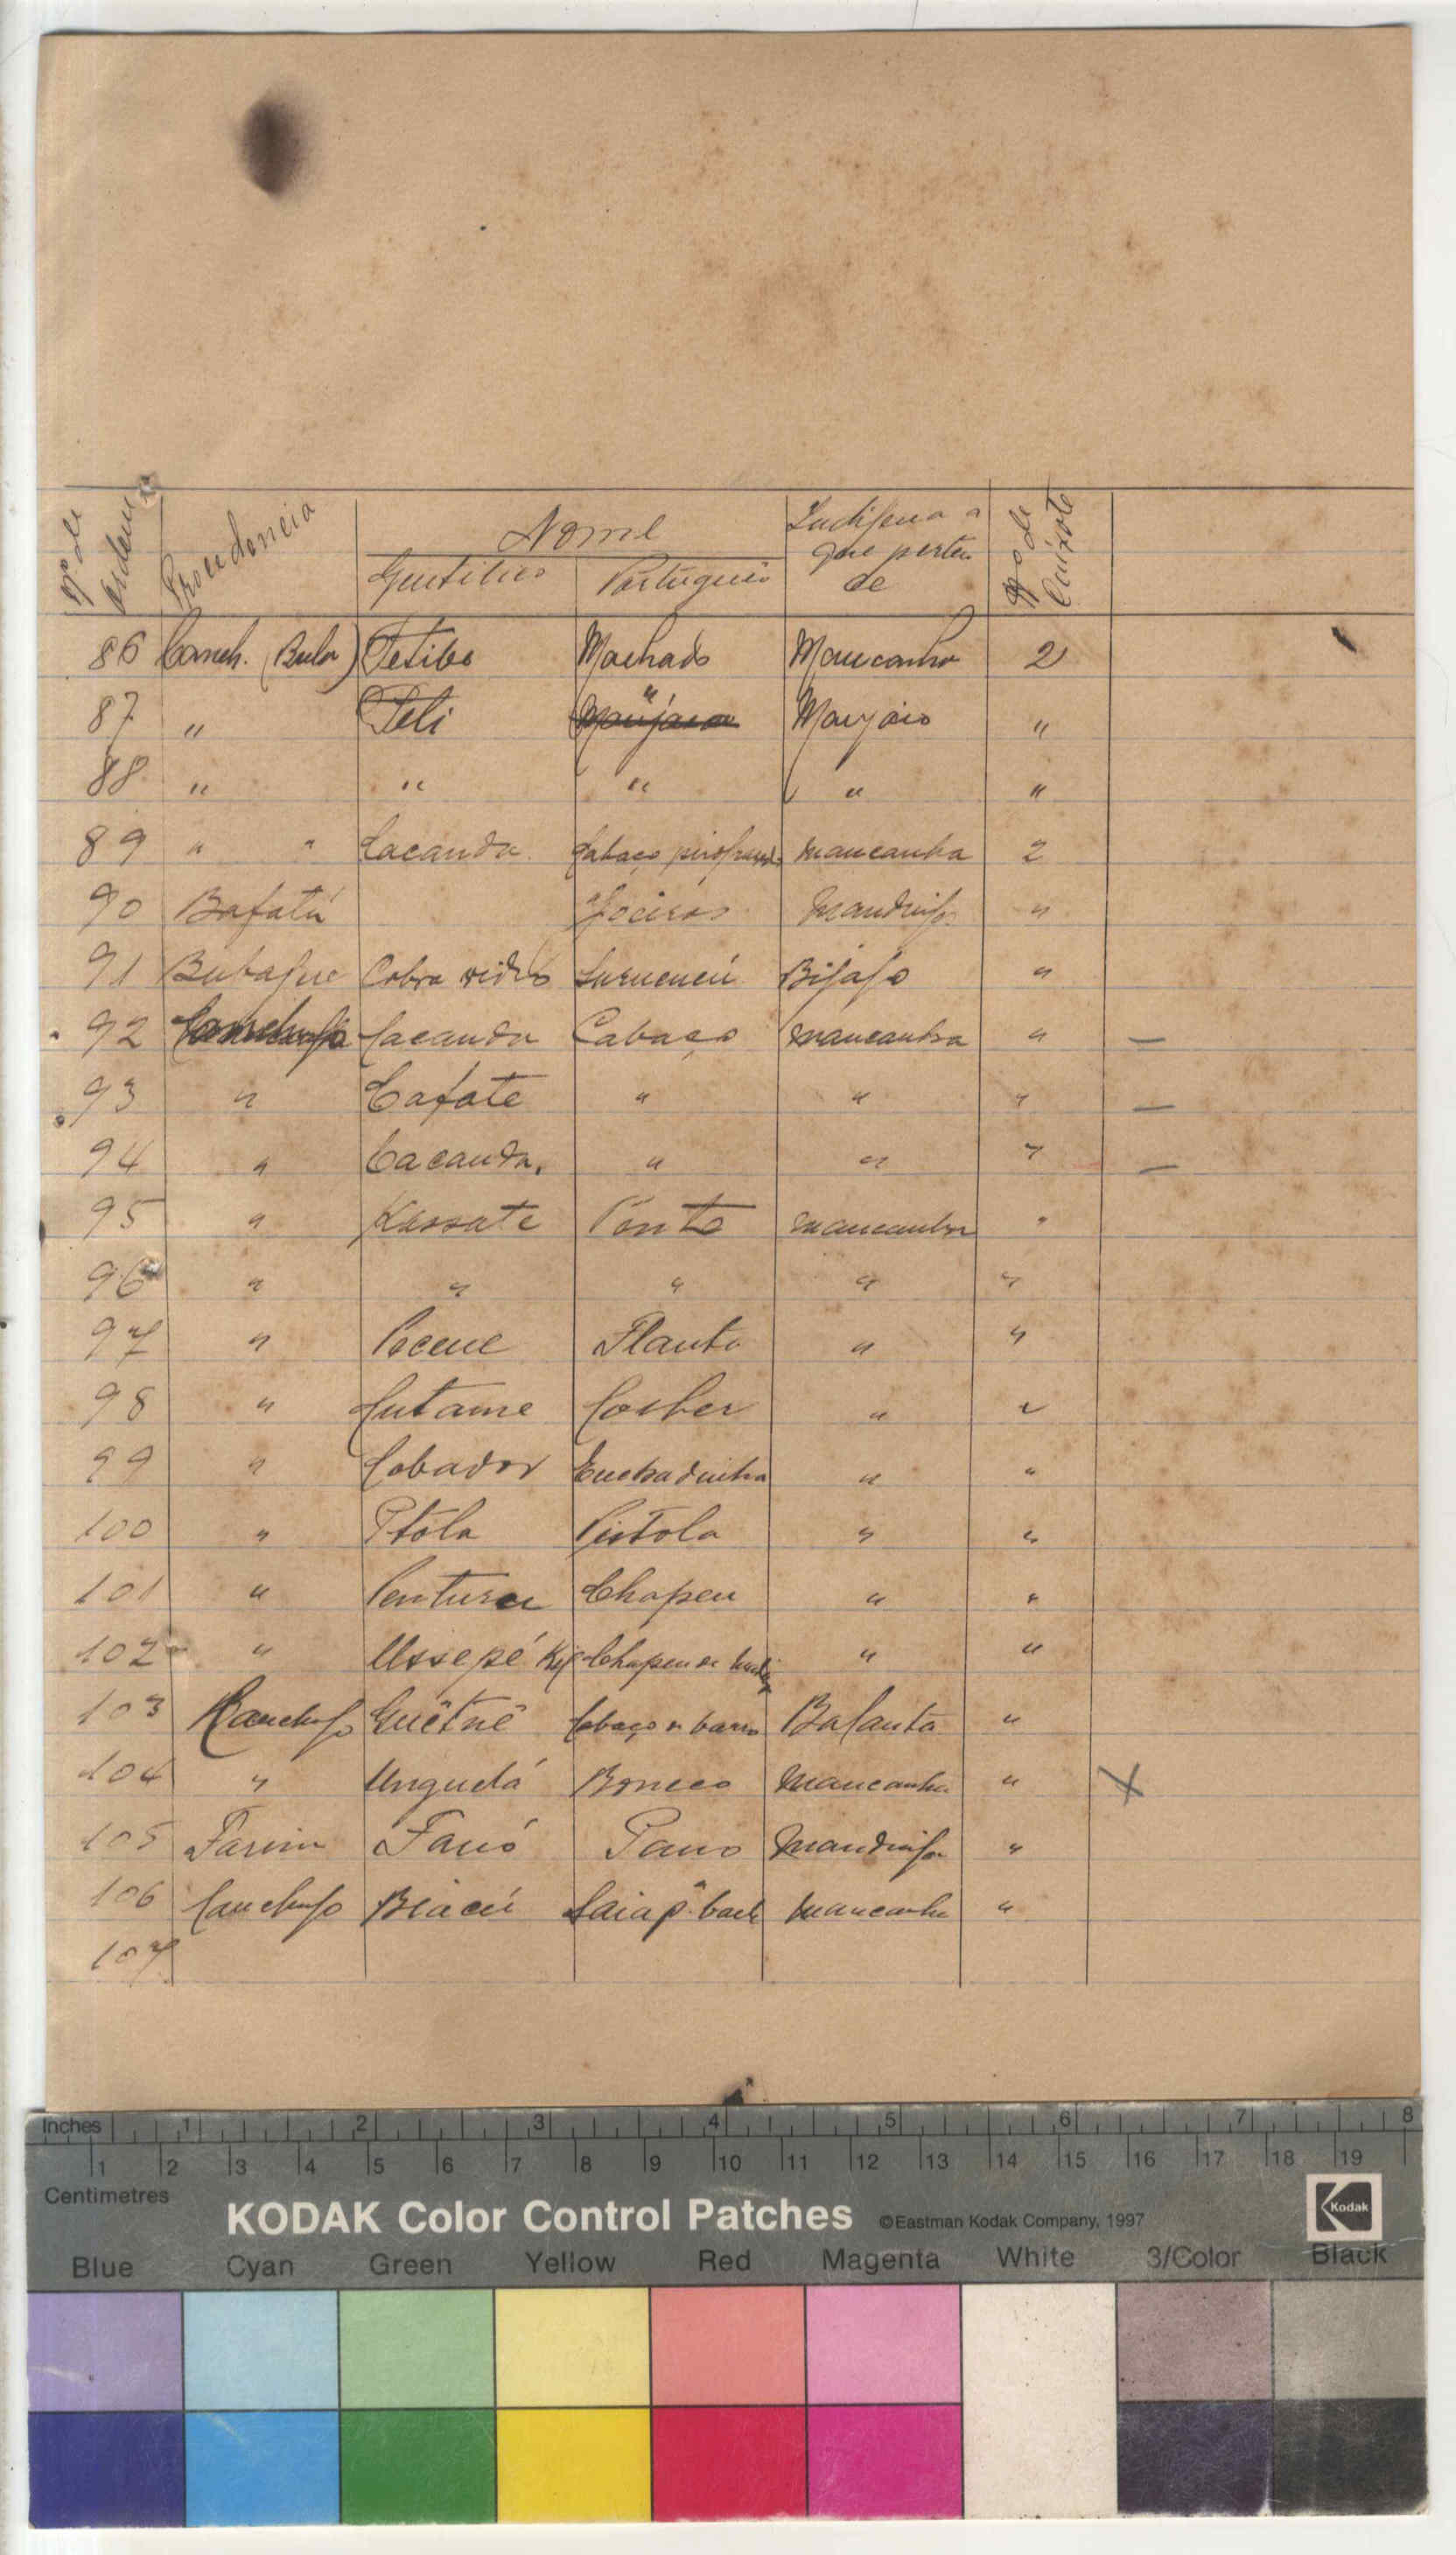 Nº de ordem Procedencia Nome Indigena a que pertende Nº de Caixote
Gentilico Portuguêz
86 Canch. (Bula) Tetibe Machado Mancanha 2
87 " Teli " Manjaco "
88 " " " " "
89 " " Cacanda Cabaço mancanha 2
90 Bafatá Joeiras Mandinga "
91 Bubaque Cobra vidro Surucucú Bijago "
92 Canchungo Cacanda Cabaço Mancanha " —
93 " Cafate " " " —
94 " Cacanda. " " " —
95 " Kassate Pente mancanha "
96 " " " " "
97 " Pecene Flauta " "
98 " Cutame Colher " "
99 " Cobador Enchadinha " "
100 " Ptóla Pistola " "
101 " Penturer Chapeu " "
102 " Ussepé Chapeu de " "
103 Canchungo Guêtnê Cabaço de barro Balanta "
104 " Ungudá Boneco Mancanha " X
105 Farim Fanó Pano Mandinga "
106 Canchungo Biacú Saia p.ª baile Mancanha "
107
Inches 1 2 3 4 5 6 7 8
1 2 3 4 5 6 7 8 9 10 11 12 13 14 15 16 17 18 19
Centimetres
KODAK Color Control Patches ©Eastman Kodak Company, 1997 Kodak
Blue Cyan Green Yellow Red Magenta White 3/Color Black